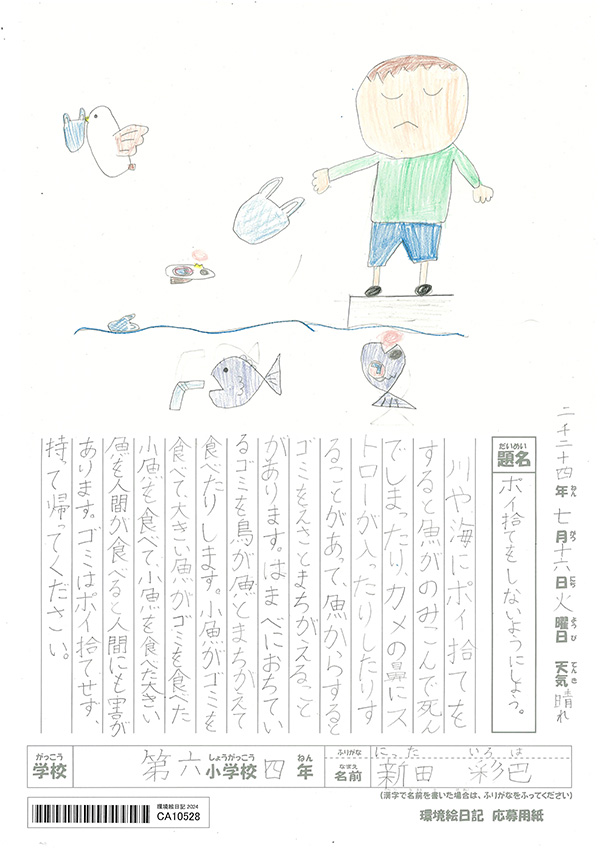 二千二十四年七月十六日火曜日 天気晴れ
ねん がつ にち ようび てんき
だいめい
題名
ポイ捨てをしないようにしよう。
川や海にポイ捨てを
すると魚がのみこんで死ん
でしまったりカメの鼻にス
トローが入ったりしたりす
ることがあって、魚からすると
ゴミをえさとまちがえること
があります。はまべにおちてい
るゴミを鳥が魚とまちがえて
食べたりします。小魚がゴミを
食べて、大きい魚がゴミを食べた
小魚を食べて、小魚を食べた大きい
魚を人間が食べると人間にも害が
あります。ゴミはポイ捨てせず、
持って帰ってください。
がっこう しょうがっこう ねん
学校 第六小学校 四年
ふりがな にった いろは
なまえ
名前 新田 彩巴
(漢字で名前を書いた場合は、ふりがなをふってください)
環境絵日記 2024
CA10528
環境絵日記 応募用紙